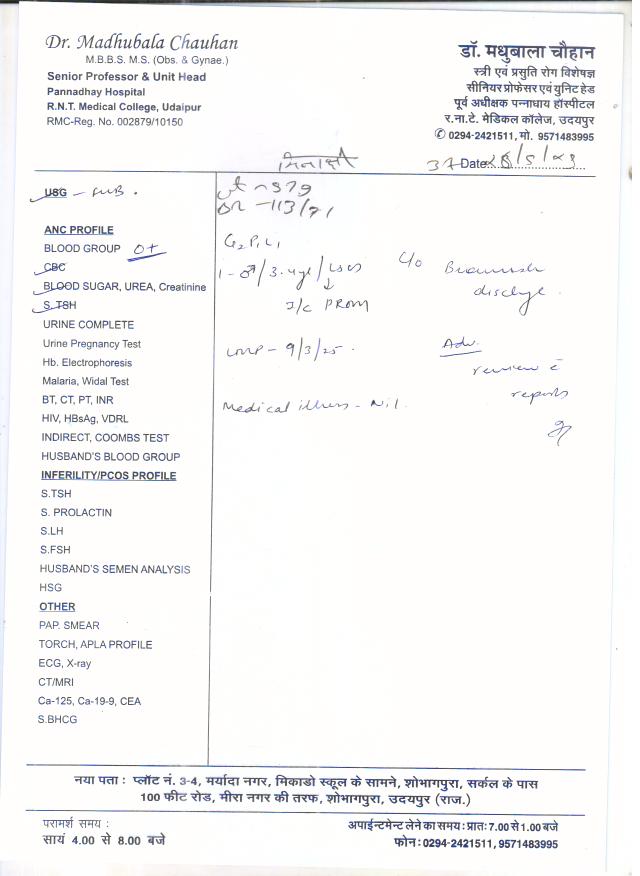 Dr. Madhubala Chauhan
M.B.B.S. M.S. (Obs. & Gynae.)
Senior Professor & Unit Head
Pannadhay Hospital
R.N.T. Medical College, Udaipur
RMC-Reg. No. 002879/10150
डॉ. मधुबाला चौहान
स्त्री एवं प्रसुति रोग विशेषज्ञ
सीनियर प्रोफेसर एवं युनिट हेड
पूर्व अधीक्षक पन्नाधाय हॉस्पीटल
र.ना.टे. मेडिकल कॉलेज, उदयपुर
✆ 0294-2421511, मो. 9571483995
Date
USG - 
ANC PROFILE
BLOOD GROUP O+
CBC
BLOOD SUGAR, UREA, Creatinine
S.TSH
URINE COMPLETE
Urine Pregnancy Test
Hb. Electrophoresis
Malaria, Widal Test
BT, CT, PT, INR
HIV, HBsAg, VDRL
INDIRECT, COOMBS TEST
HUSBAND'S BLOOD GROUP
INFERILITY/PCOS PROFILE
S.TSH
S. PROLACTIN
S.LH
S.FSH
HUSBAND'S SEMEN ANALYSIS
HSG
OTHER
PAP. SMEAR
TORCH, APLA PROFILE
ECG, X-ray
CT/MRI
Ca-125, Ca-19-9, CEA
S.BHCG
BP - 113/71
G2P1L1
1 - ♂ / 3.4 yr / LSCS
↓
I/c PROM
LMP - 9/3/25 -
Medical illness - Nil.
C/o Brownish
discharge.
Adv.
review c̄
reports
नया पता : प्लॉट नं. 3-4, मर्यादा नगर, मिकाडो स्कूल के सामने, शोभागपुरा, सर्कल के पास
100 फीट रोड, मीरा नगर की तरफ, शोभागपुरा, उदयपुर (राज.)
परामर्श समय :
सायं 4.00 से 8.00 बजे
अपाईन्टमेन्ट लेने का समय : प्रातः 7.00 से 1.00 बजे
फोन : 0294-2421511, 9571483995